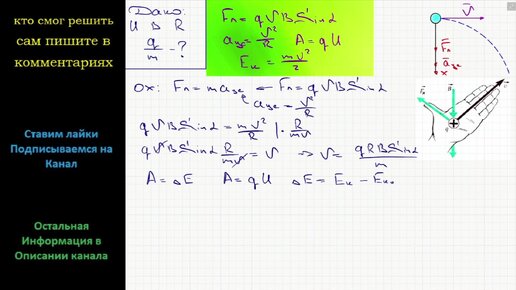 кто смог решить
сам пишите в
комментариях
Ставим лайки
Подписываемся на
Канал
Остальная
Информация в
Описании канала
Дано:
U B R
q/m - ?
Fл = qVBSinα
aцс = V²/R A = qU
Eк = mV²/2
ox: Fл = maцс ← Fл = qVBSinα
aцс = V²/R
qVBSinα = mV²/R | · R/mV
qVBSinα R/mV = V ⇒ V = qRBSinα/m
A = ΔE A = qU ΔE = Eк - Eк₀
V
Fл
aцс
x